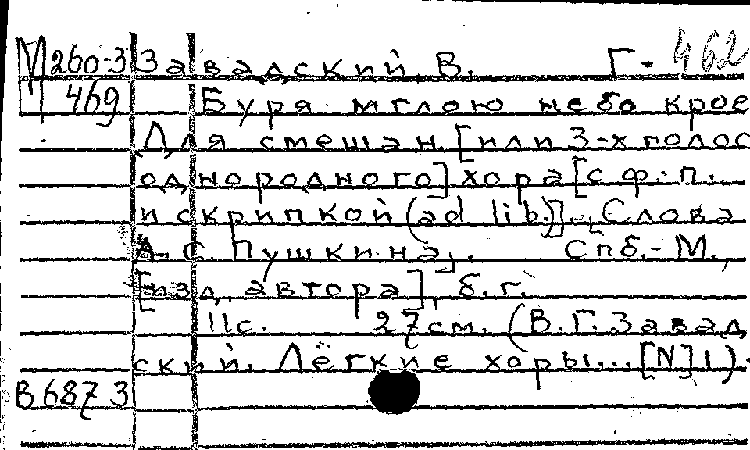 М 260-3 Завадский, В. Г-462
469 Буря мглою небо крое
Для смешан. [или 3-х полос
однородного] хора [с ф.-п.
и скрипкой (ad lib.)]. Слова
А. С. Пушкина, . Спб.-М.,
[изд. автора], б. г.
11с. 27см. (В. Г. Завад
ский. Лёгкие хоры...[N]1).
В 687 3